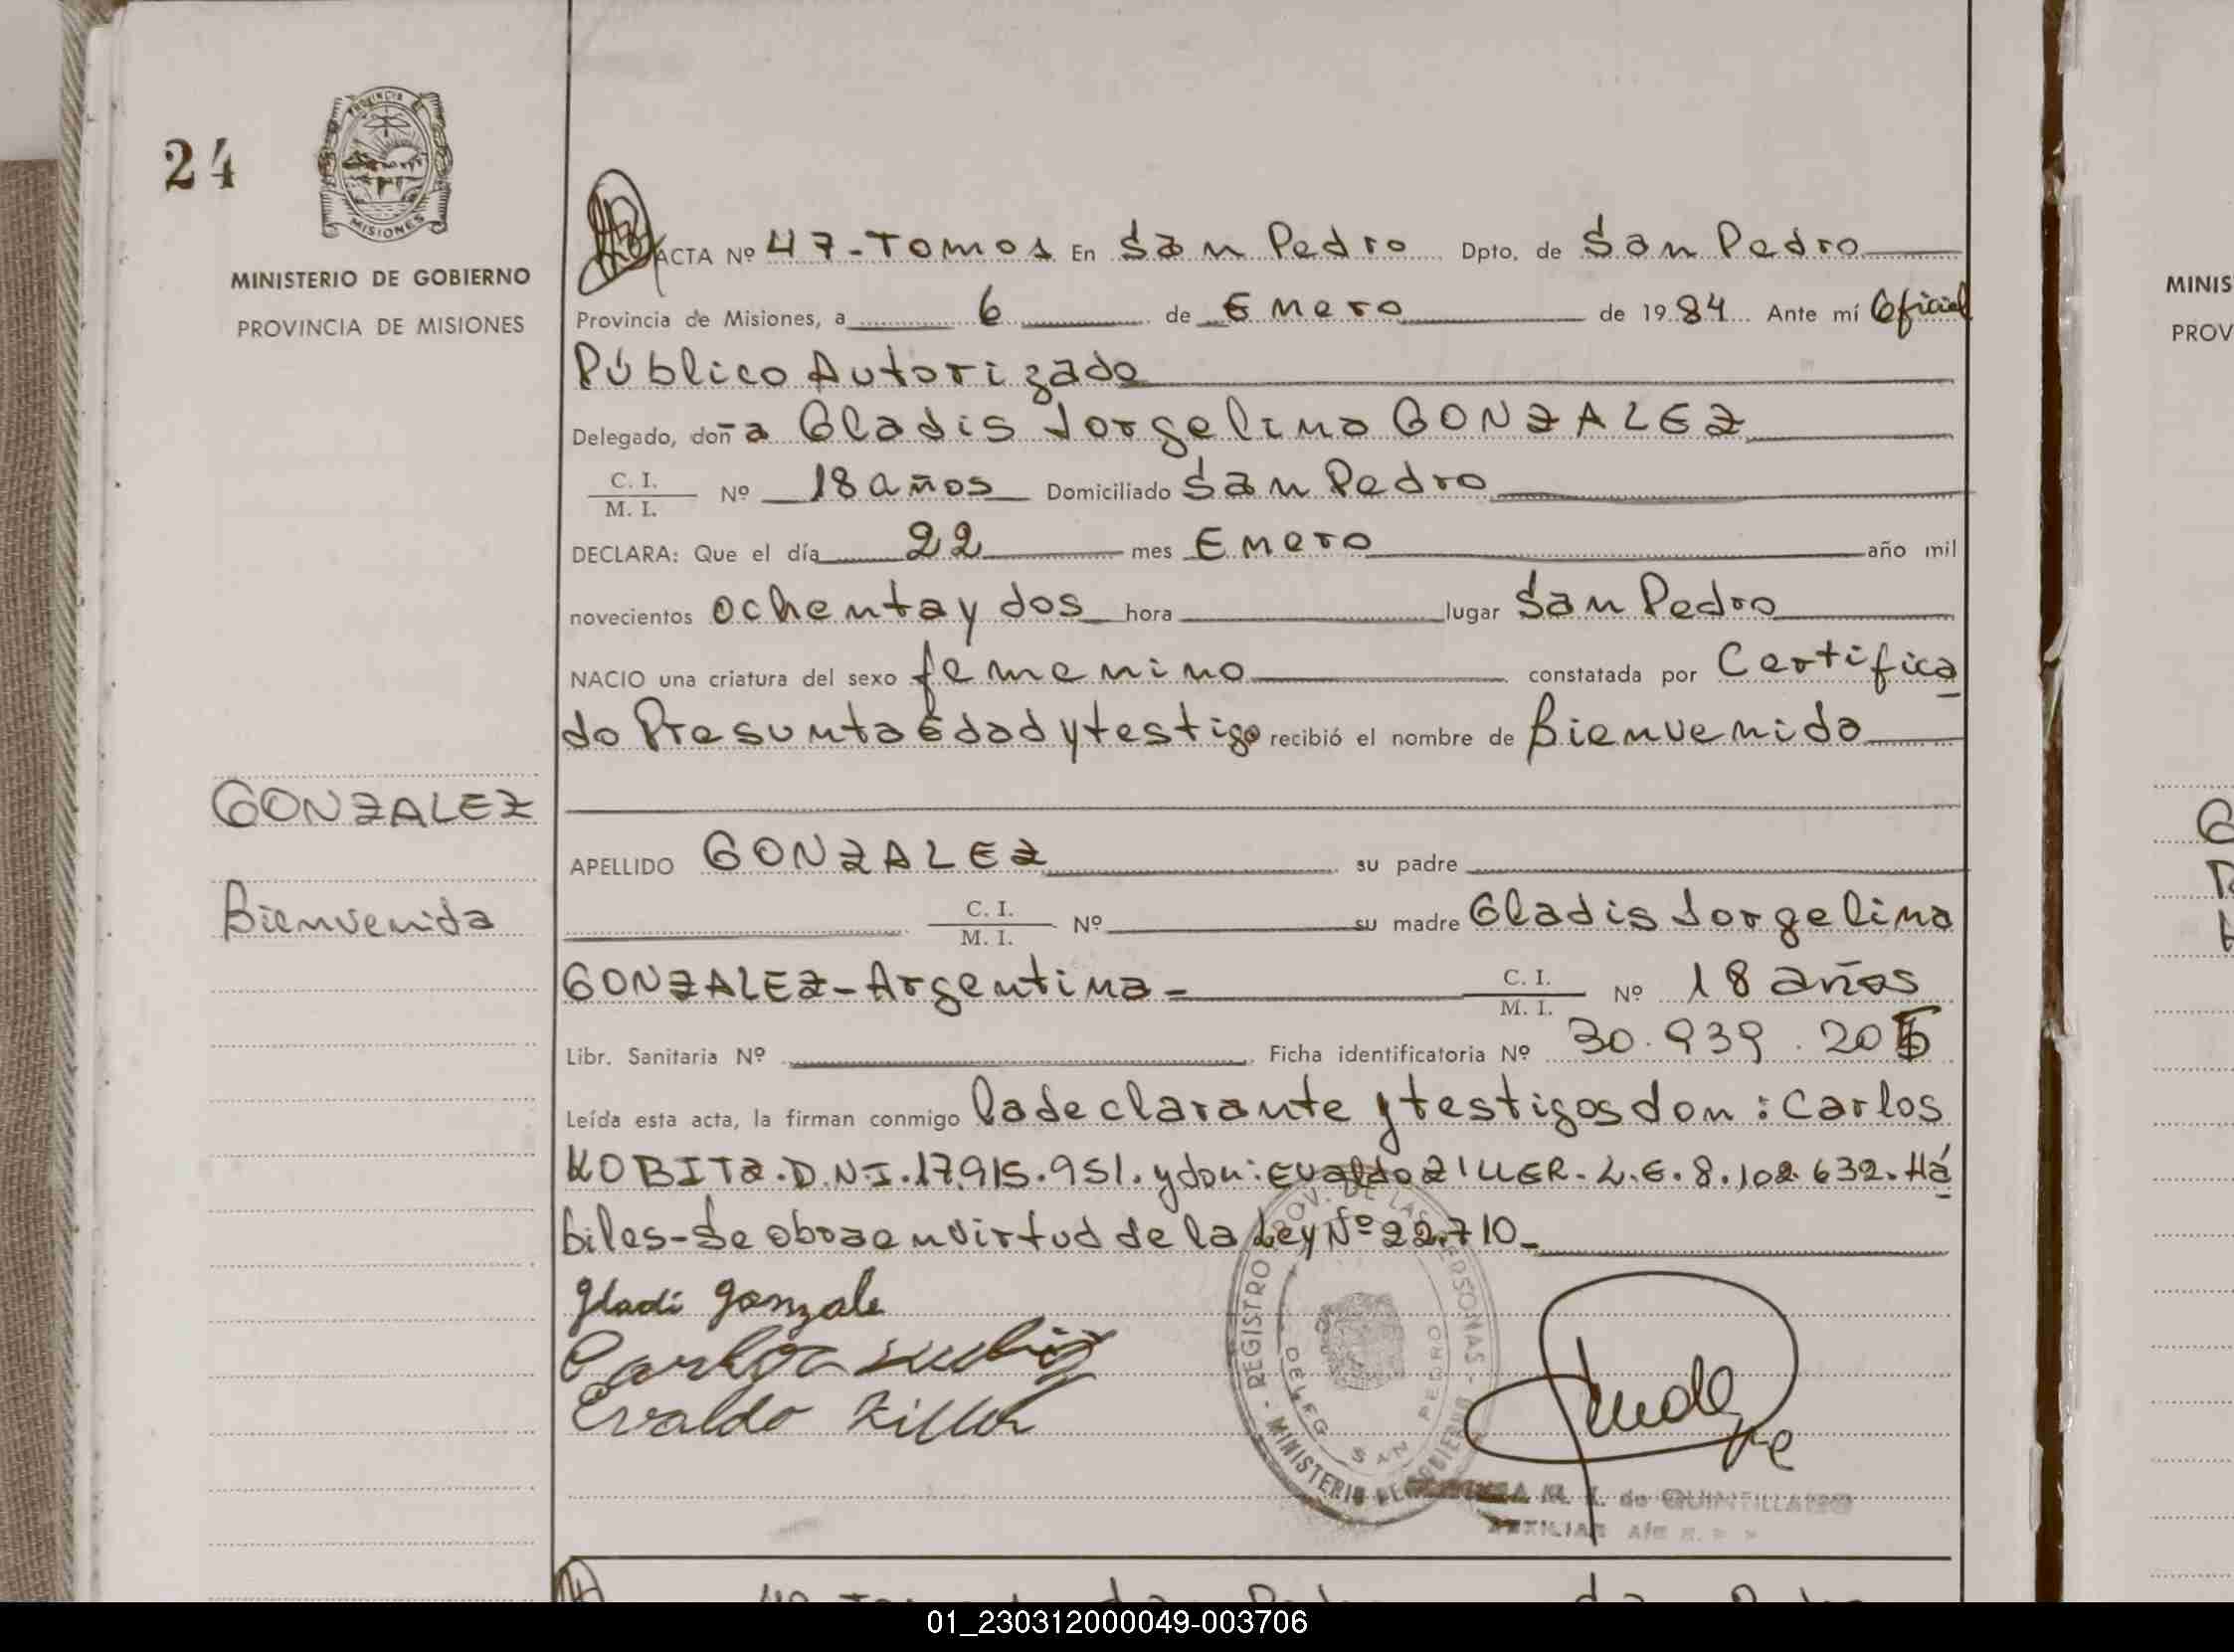 24
PROVINCIA
MISIONES
MINISTERIO DE GOBIERNO
PROVINCIA DE MISIONES
ACTA Nº 47-Tomo1 En San Pedro Dpto. de San Pedro
Provincia de Misiones, a 6 de Enero de 1984 Ante mí Oficial
Público Autorizado
Delegado, doña Gladis Jorgelina GONZALEZ
C. I. / M. I. Nº 18 años Domiciliado San Pedro
DECLARA: Que el día 22 mes Enero año mil
novecientos ochenta y dos hora lugar San Pedro
NACIO una criatura del sexo femenino constatada por Certifica
do Presunta Edad y testigo recibió el nombre de Bienvenida
GONZALEZ
Bienvenida
APELLIDO GONZALEZ su padre
C. I. / M. I. Nº su madre Gladis Jorgelina
GONZALEZ-Argentina- C. I. / M. I. Nº 18 años
Libr. Sanitaria Nº Ficha identificatoria Nº 30.939.205
Leída esta acta, la firman conmigo la declarante y testigos don: Carlos
KOBITZ. D.N.I. 17.915.951. y don: Evaldo ZILLER. L.E. 8.102.632. Há
biles-Se obra en virtud de la Ley Nº 22.710-
Gladi Gonzale
Carlos
Evaldo Ziller
REGISTRO PROV. DE LAS PERSONAS - MINISTERIO DE GOBIERNO
DELEG. SAN PEDRO
de QUINTILLA
AUXILIAR
MINIS
PROV
01_230312000049-003706